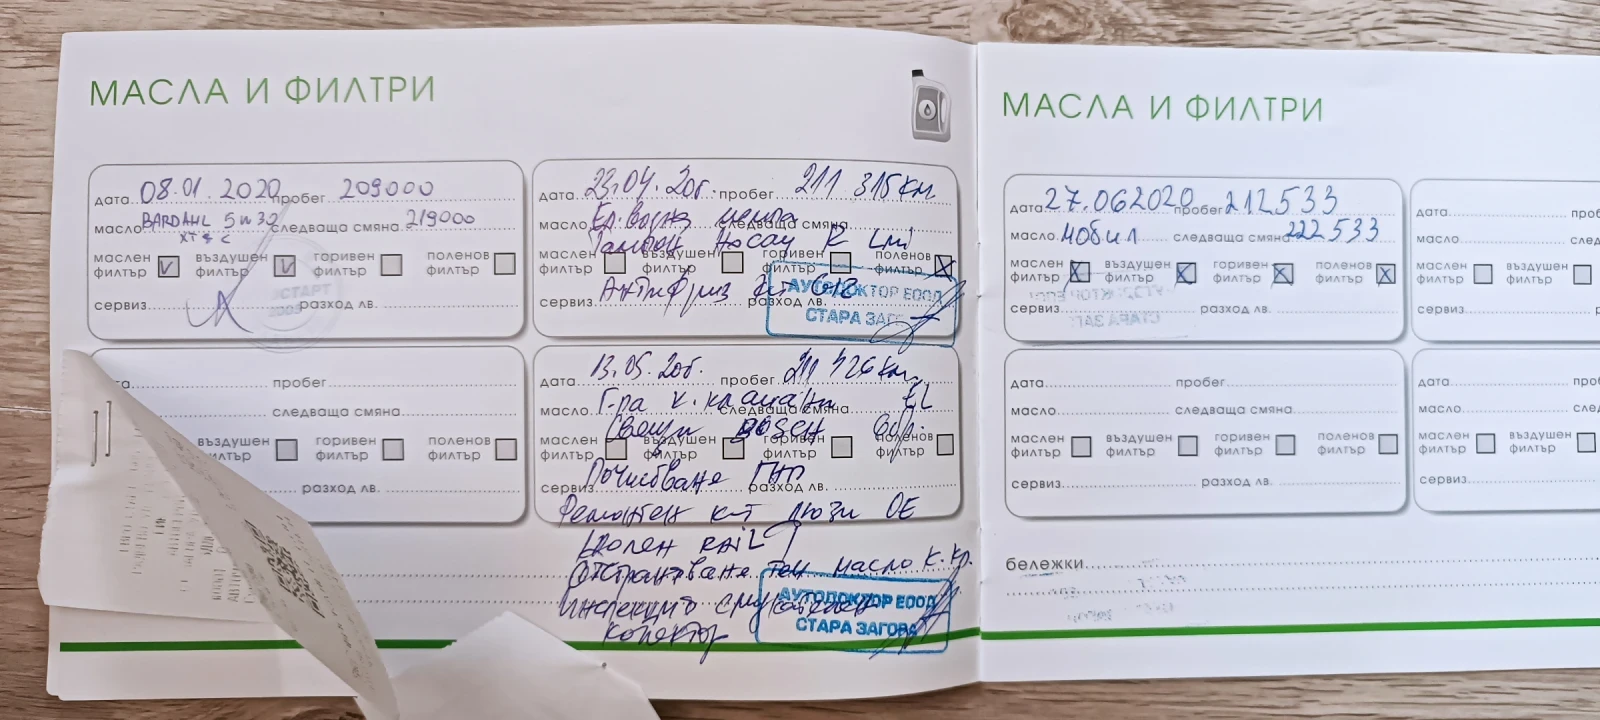 МАСЛА И ФИЛТРИ
дата 08.01.2020 пробег 209000
масло BARDAHL 5w30 следваща смяна 219000
XTSC
маслен филтър въздушен филтър горивен филтър поленов филтър
сервиз разход лв.
СТАРТ
2003
дата 23.04.20г. пробег 211 315 км.
масло Кр. водна помпа следваща смяна
Тампон носач R
маслен филтър въздушен филтър горивен филтър поленов филтър
Антифриз к-т G12
сервиз разход лв.
АУТОДОКТОР ЕООД
СТАРА ЗАГ
пробег
следваща смяна
въздушен филтър горивен филтър поленов филтър
разход лв.
дата 13.05.20г. пробег 211 726 км.
масло Г-ра к. капачки следваща смяна
Свещи 6бр.
маслен филтър въздушен филтър горивен филтър поленов филтър
Почистване ГНП
сервиз разход лв.
Ремонтен к-т дюзи OE
RAIL
Отстраняване теч масло к.кр.
Инспекция смукателен
колектор
АУТОДОКТОР ЕООД
СТАРА ЗАГОРА
МАСЛА И ФИЛТРИ
дата 27.062020 пробег 212533
масло Мобил следваща смяна 222533
маслен филтър въздушен филтър горивен филтър поленов филтър
сервиз разход лв.
дата
масло
маслен филтър въздушен филтър
сервиз
дата пробег
масло следваща смяна
маслен филтър въздушен филтър горивен филтър поленов филтър
сервиз разход лв.
дата
масло
маслен филтър въздушен филтър
сервиз
бележки